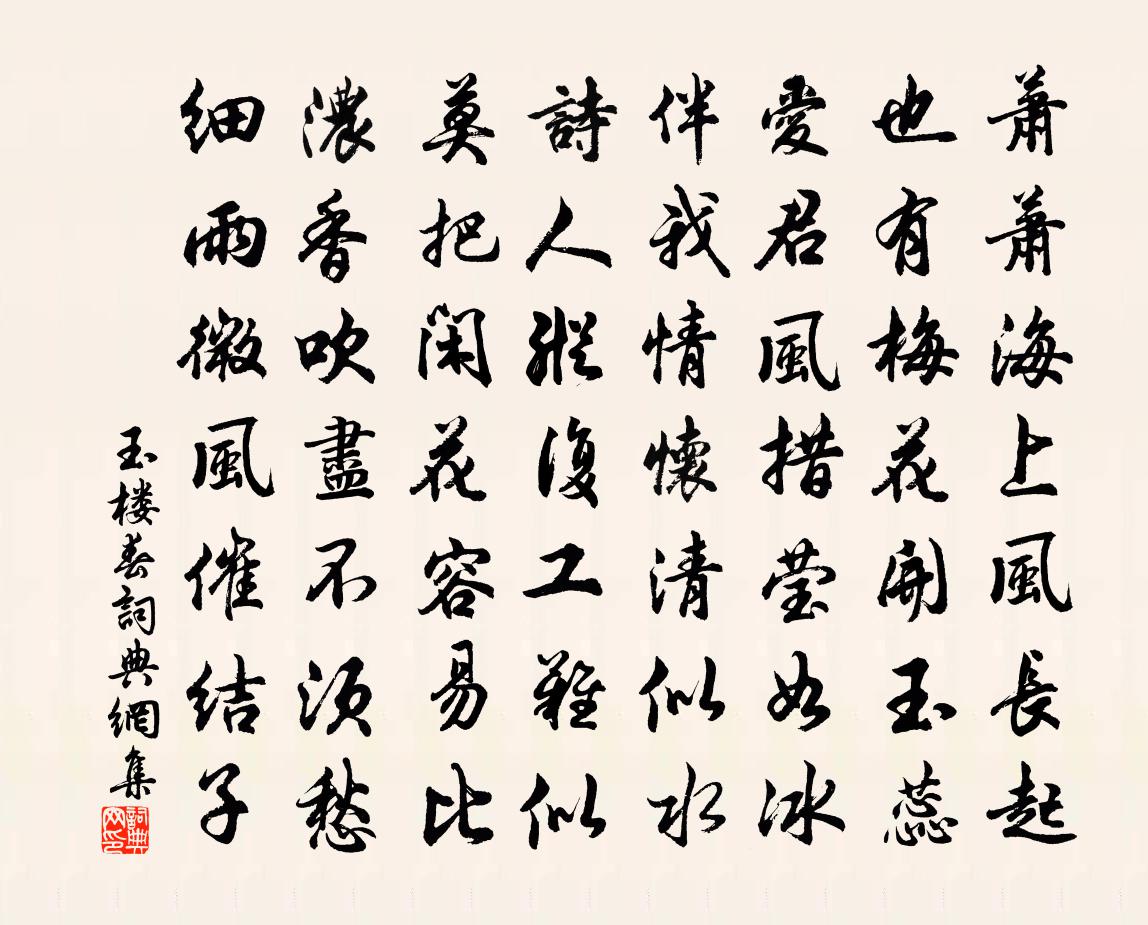 蕭蕭海上風長起
也有梅花開玉蕊
愛君風措瑩如冰
伴我情懷清似水
詩人縱復工難似
莫把閑花容易比
濃香吹盡不須愁
細雨微風催結子
玉楼春詞典網集
詞典网印